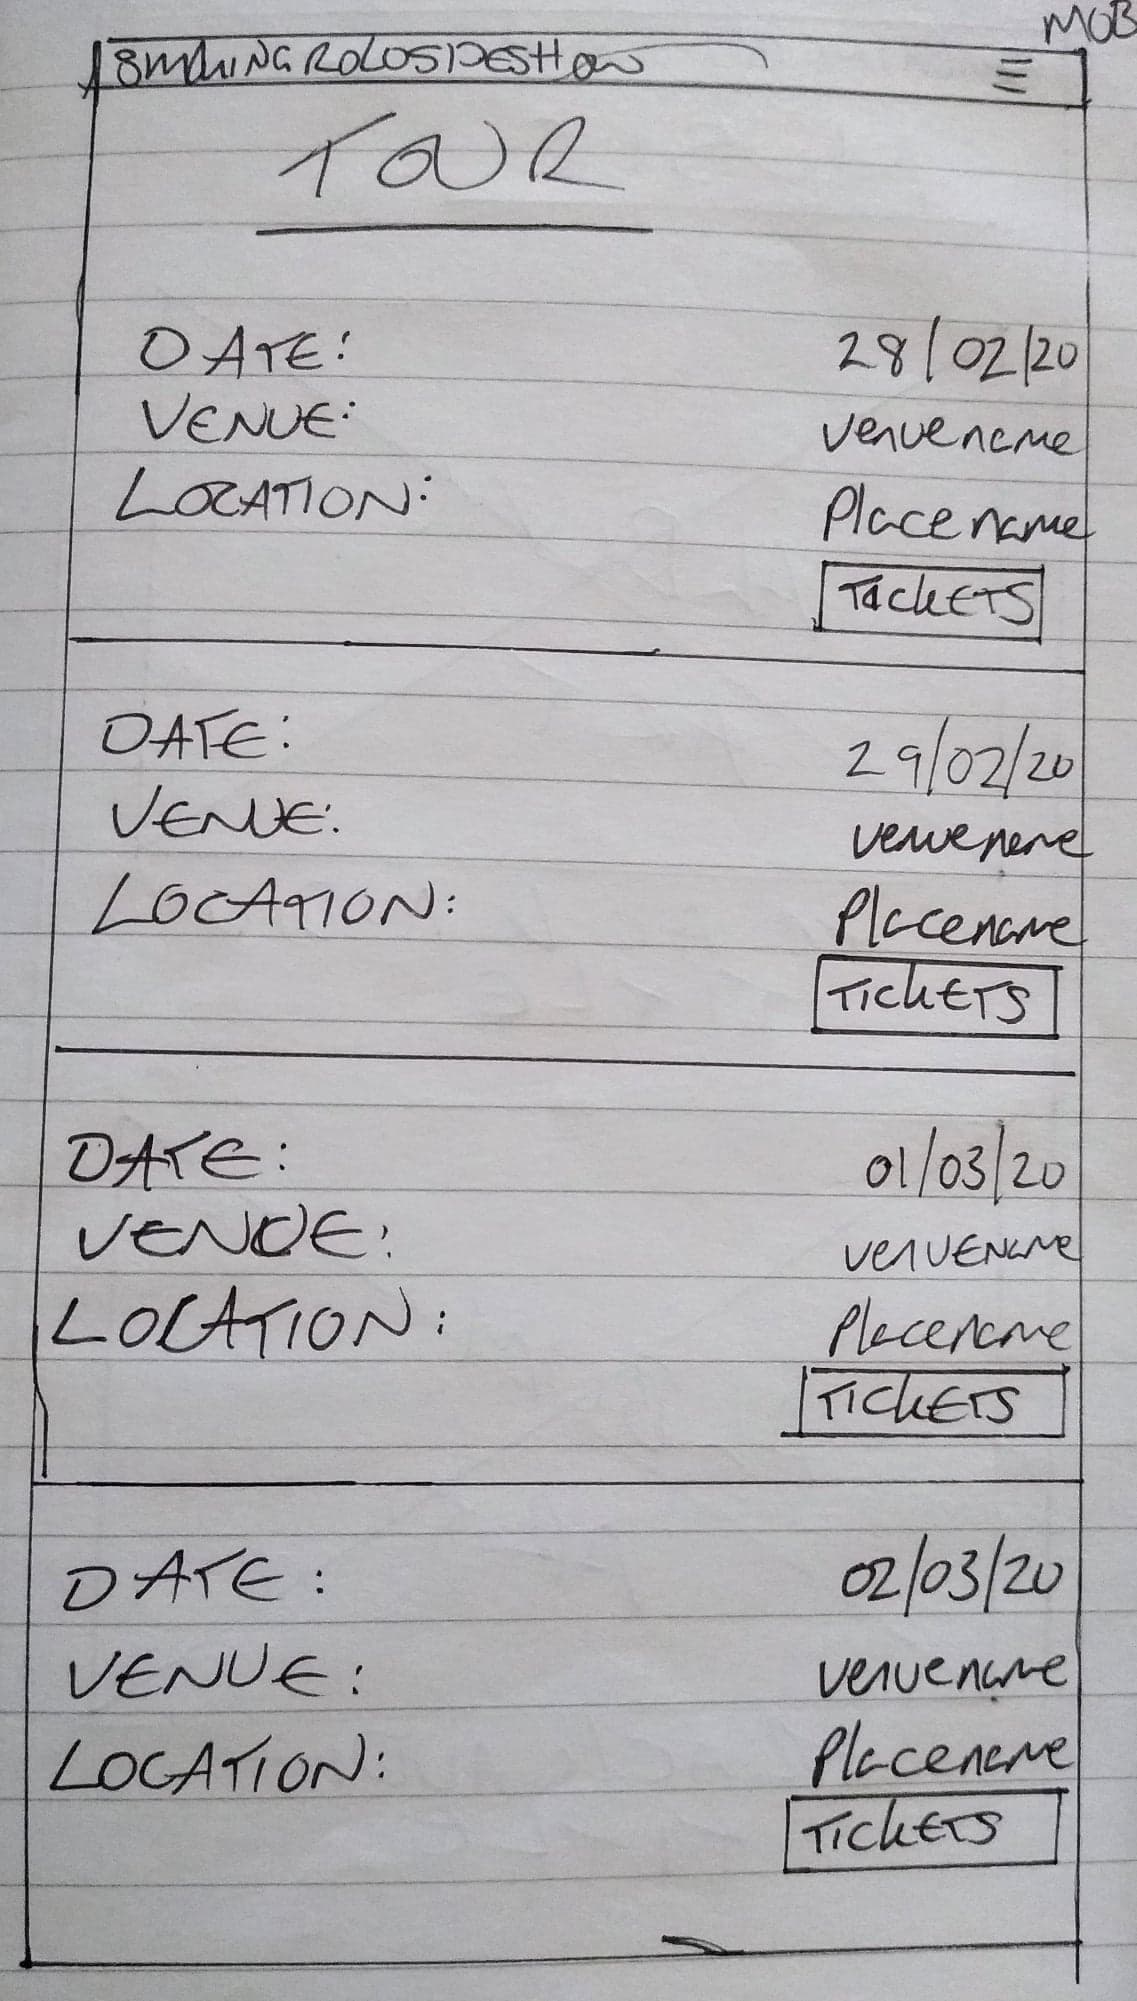 MOB
TOUR
DATE: 28/02/20
VENUE: venuename
LOCATION: Placename
TICKETS
DATE: 29/02/20
VENUE: venuename
LOCATION: Placename
TICKETS
DATE: 01/03/20
VENUE: VENUENAME
LOCATION: Placename
TICKETS
DATE: 02/03/20
VENUE: venuename
LOCATION: Placename
TICKETS